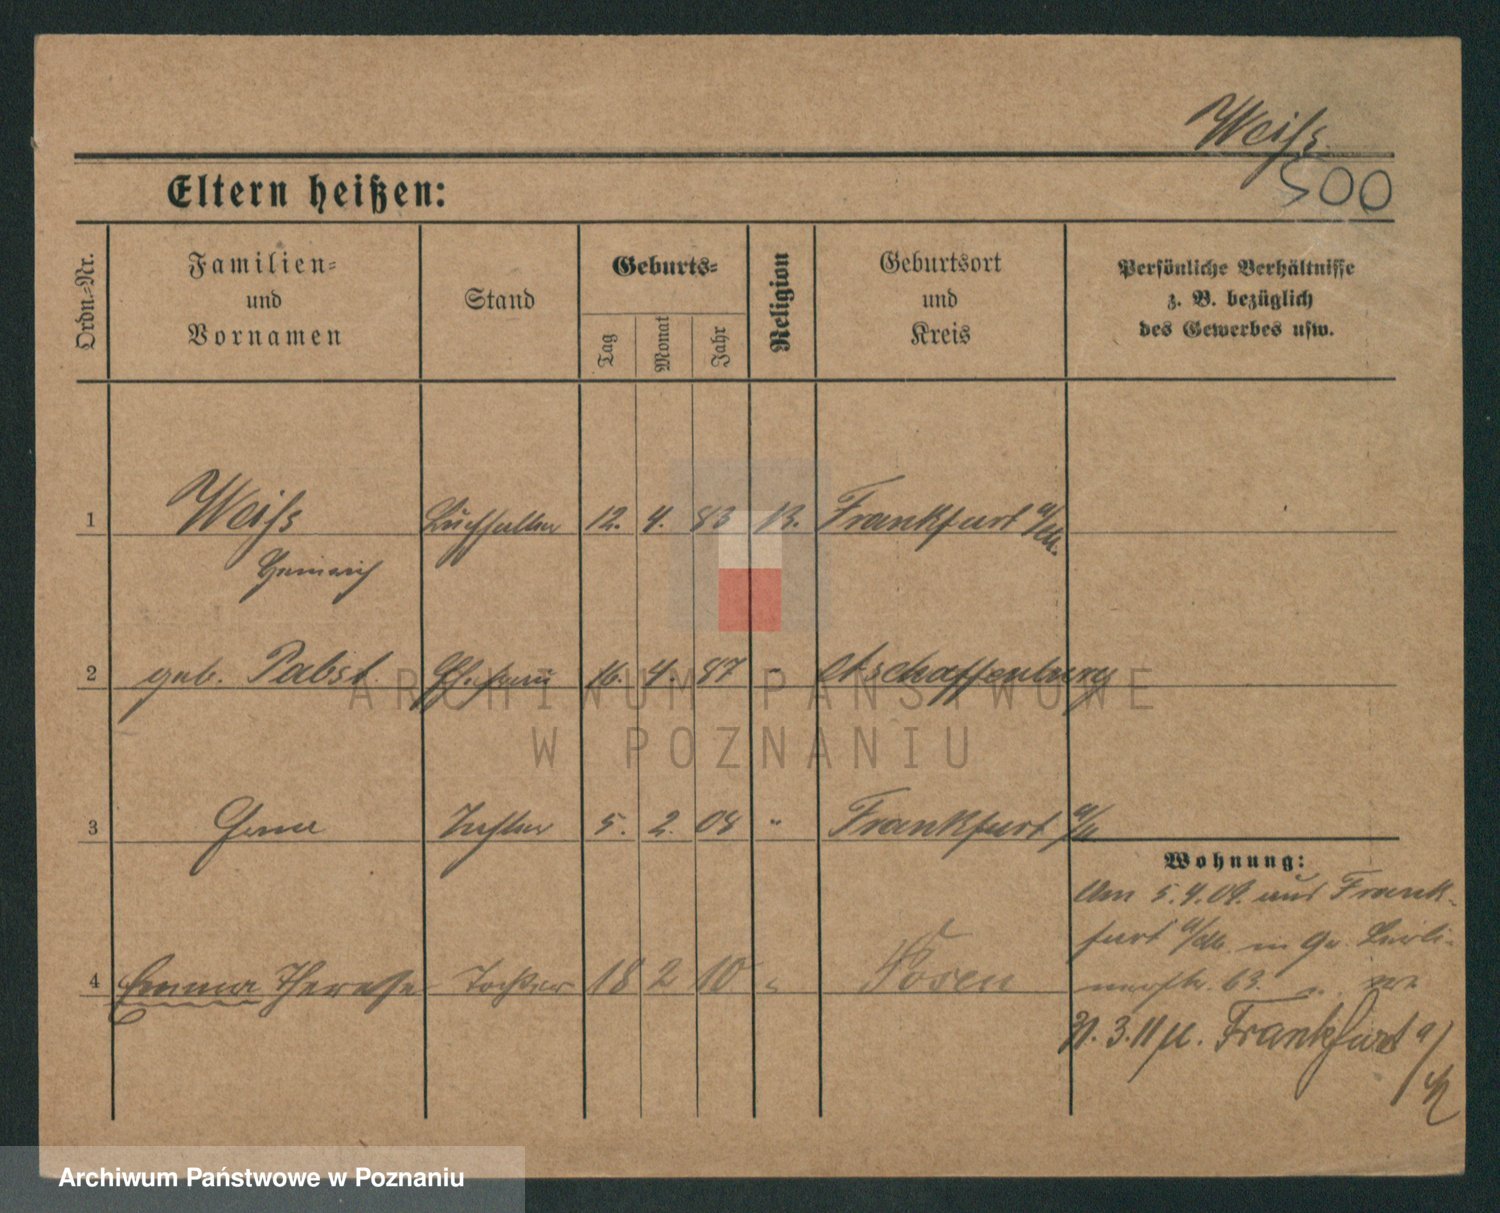 Weiss
500
Eltern heißen:
Ordn.-Nr.
Familien-
und
Vornamen
Stand
Geburts-
Tag
Monat
Jahr
Religion
Geburtsort
und
Kreis
Persönliche Verhältnisse
z. B. bezüglich
des Gewerbes usw.
1 Weiss Buchhalter 12. 4. 83 Frankfurt a/M.
Heinrich
2 geb. Pabst Ehefrau 16. 4. 87 " Aschaffenburg
3 Tochter 5. 2. 08 " Frankfurt a/M
Wohnung:
Am 5.4.09. aus Frank-
furt a/M. in Gr. Berli-
nerstr. 63.
4 Emma Therese Tochter 18 2 10 " Posen
31. 3. 11 Frankfurt a/
M
ARCHIWUM PAŃSTWOWE
W POZNANIU
Archiwum Państwowe w Poznaniu